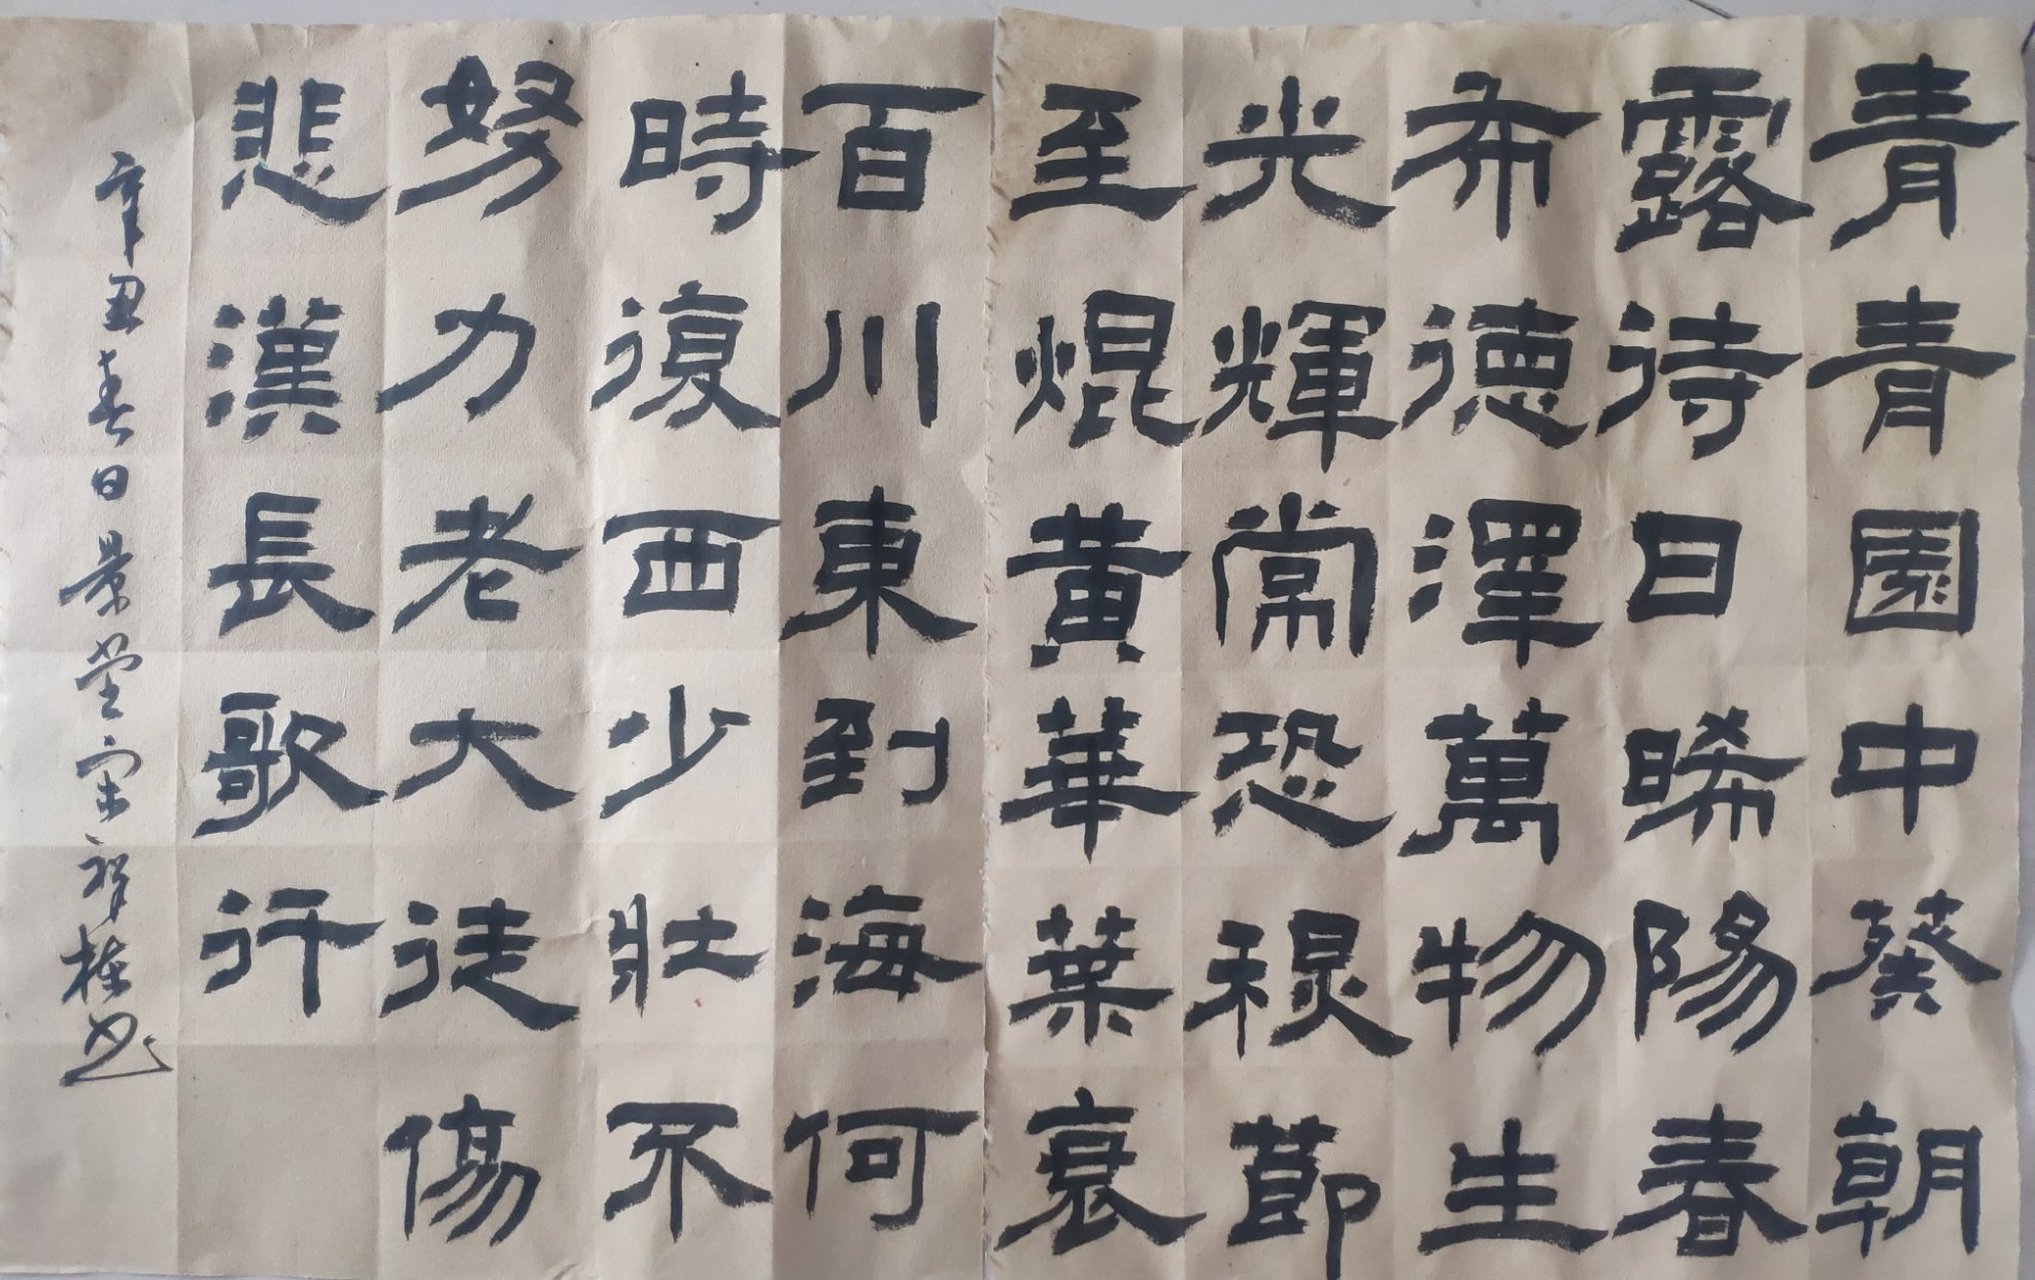 青青園中葵朝
露待日晞陽春
布德澤萬物生
光輝常恐穏節
至焜黄華葉衰
百川東到海何
時復西少壯不
努力老大徒傷
悲漢長歌行
辛丑春日景堂宋祥栋书